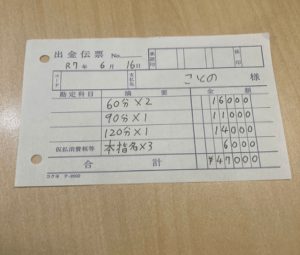 出金伝票 No.
承認印 係印
R7年 6月 16日
コード 支払先 ことの 様
勘定科目 摘要 金額
60分×2 16000
90分×1 11000
120分×1 14000
仮払消費税等 本指名×3 6000
合計 ¥47000
コクヨ テ-2002